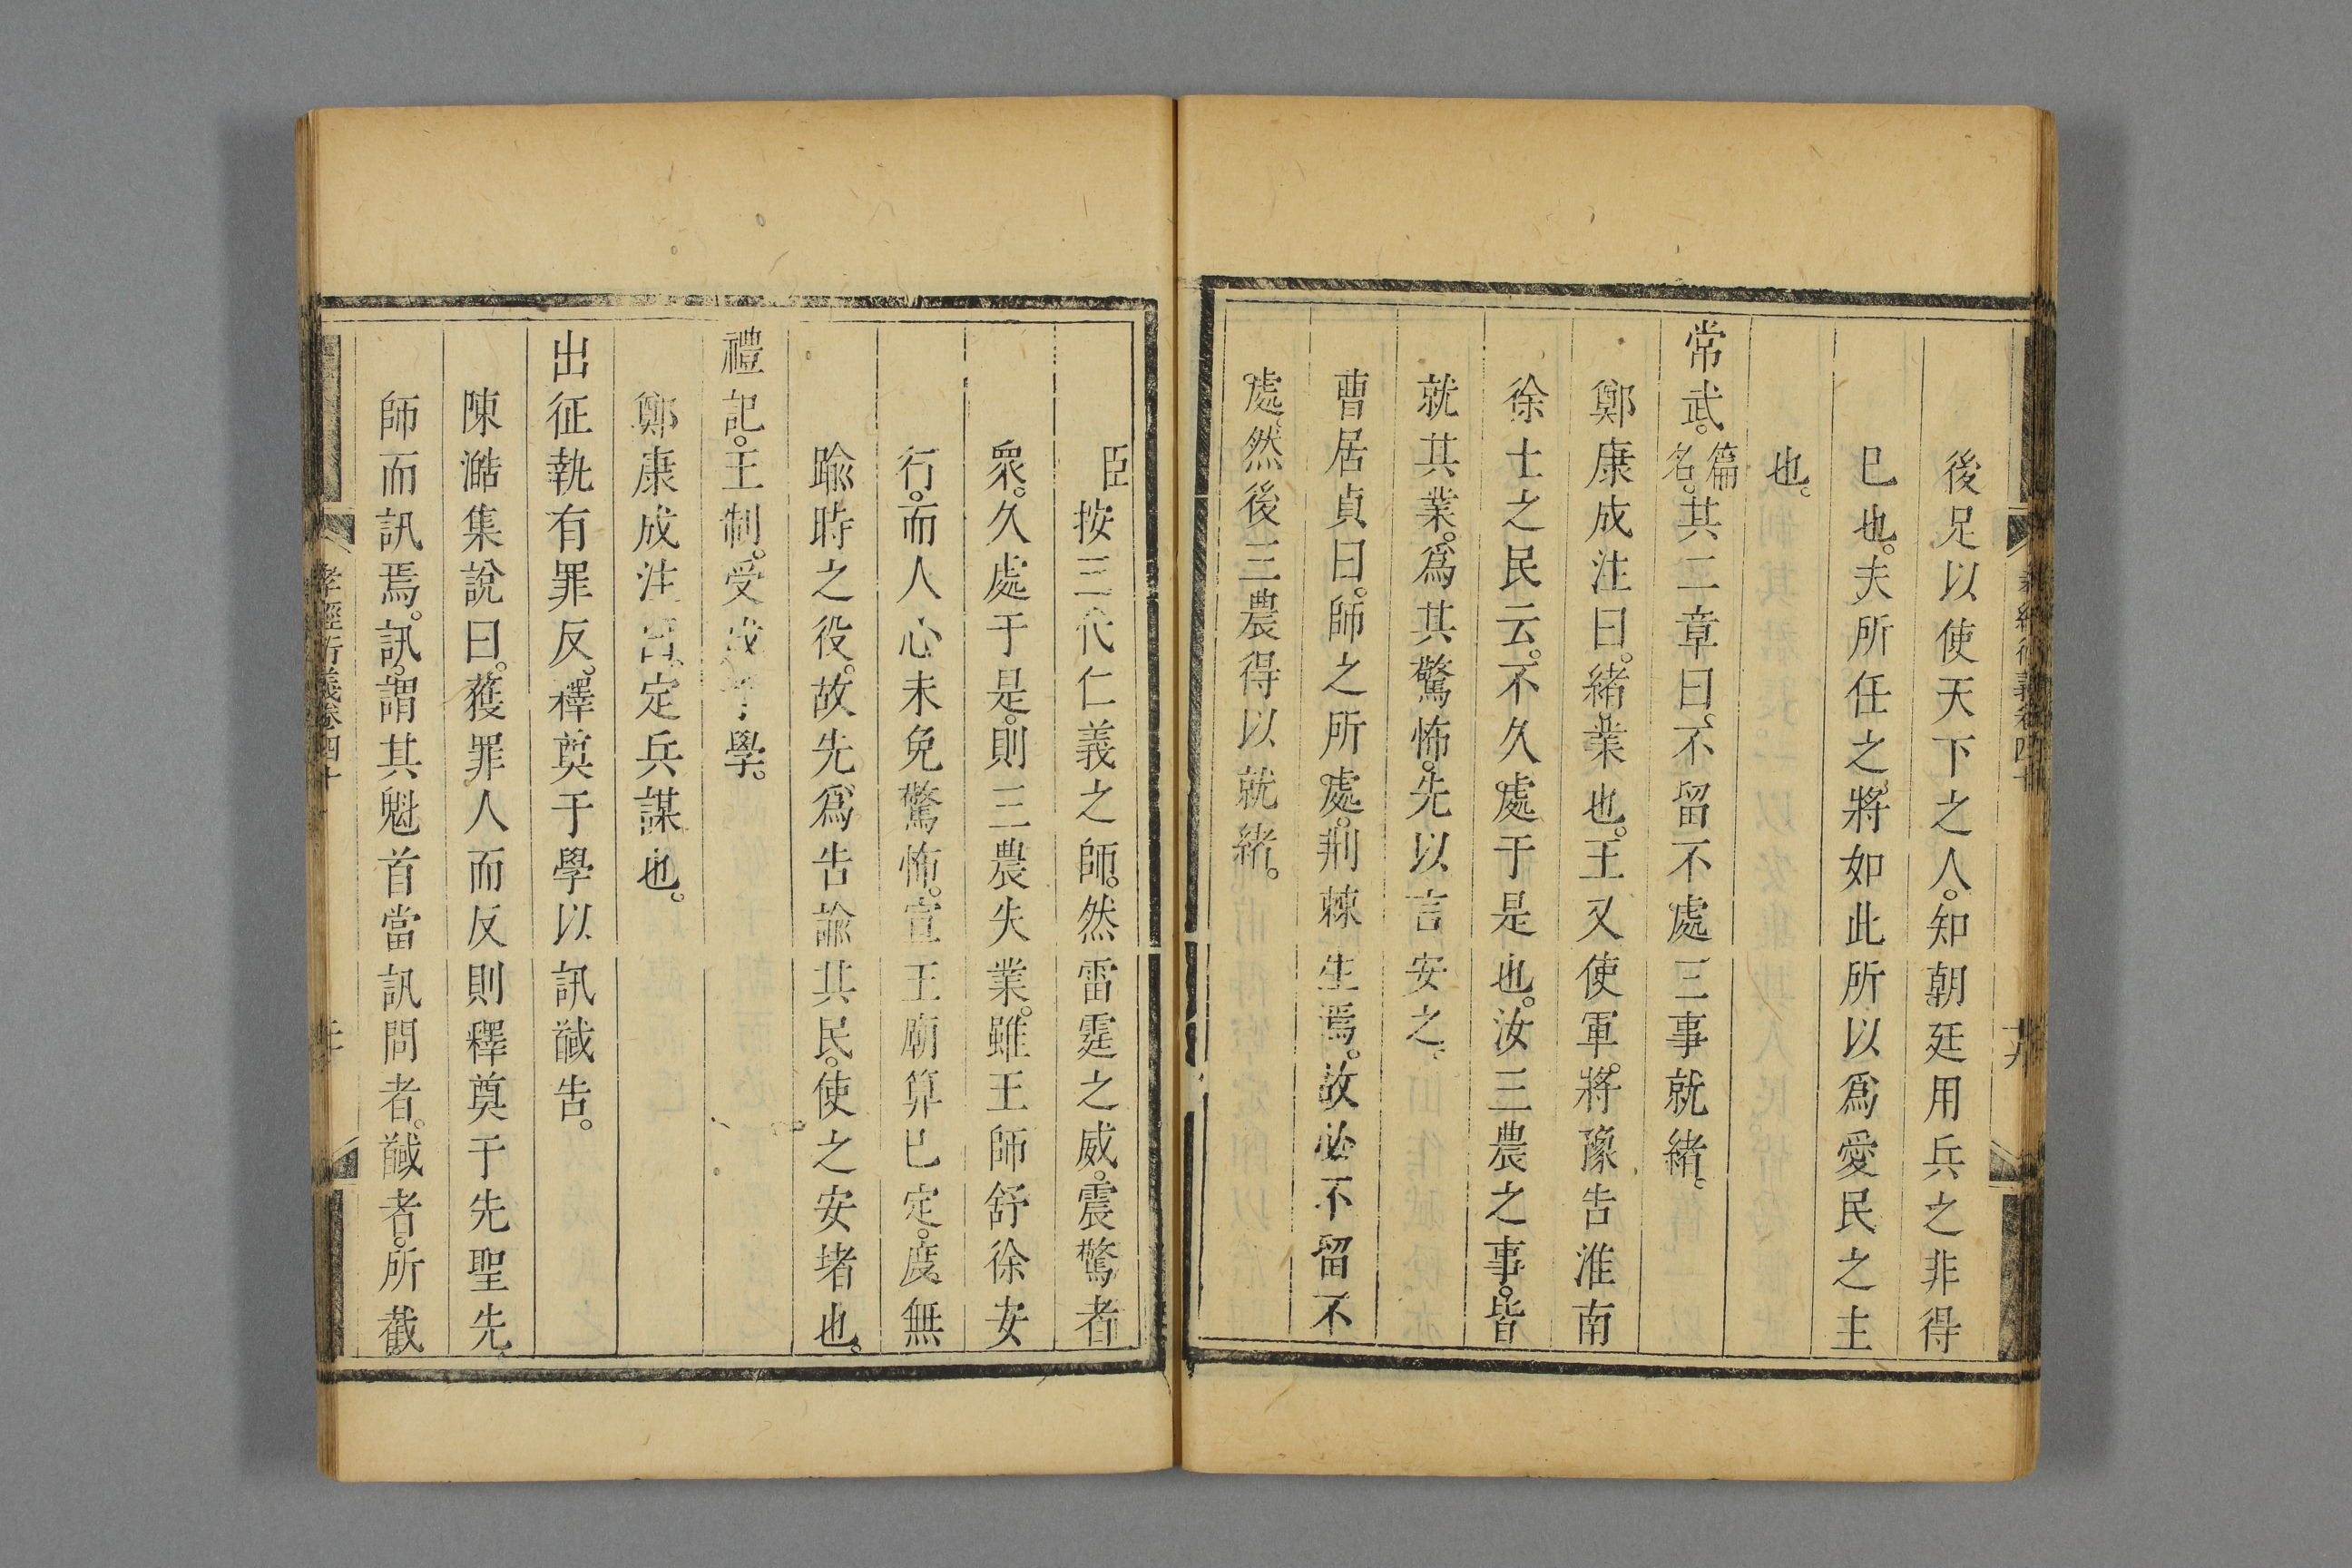 後足以使天下之人。知朝廷用兵之非得
已也。夫所任之將如此所以爲愛民之主
也。
常武。篇名。其二章曰。不留不處三事就緒。
鄭康成注曰。緒業也。王又使軍將豫告淮南
徐士之民云。不久處于是也。汝三農之事。皆
就其業。爲其驚怖。先以言安之。
曹居貞曰。師之所處。荆棘生焉。故必不留不
處。然後三農得以就緒。
臣按三代仁義之師。然雷霆之威。震驚者
衆。久處于是。則三農失業。雖王師舒徐安
行。而人心未免驚怖。宣王廟算已定。度無
踰時之役。故先爲告諭其民。使之安堵也。
禮記。王制。受成于學。
鄭康成注曰。定兵謀也。
出征執有罪反。釋奠于學以訊馘告。
陳澔集說曰。獲罪人而反則釋奠于先聖先
師而訊焉。訊。謂其魁首當訊問者。馘者。所截
孝經衍義卷四十